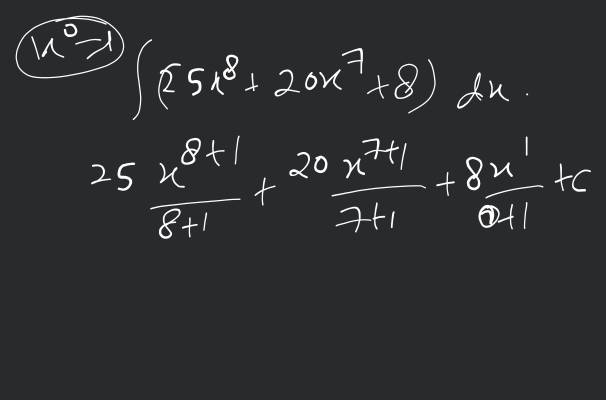 x⁰=1
∫(25x⁸ + 20x⁷ + 8) dx.
25 x⁸⁺¹/8+1 + 20 x⁷⁺¹/7+1 + 8x¹/0+1 + c